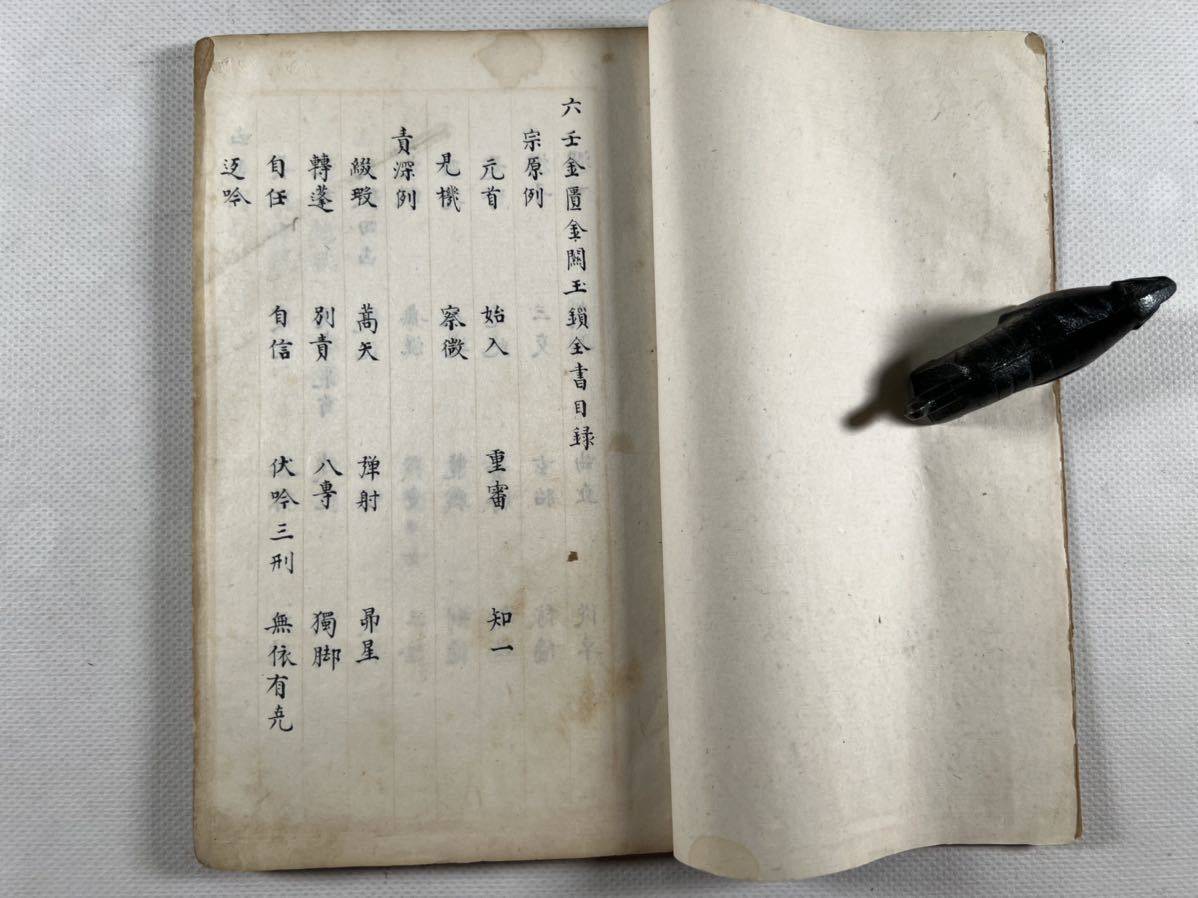 六壬金匱金關玉鎖全書目録
宗原例
元首 始入 重審 知一
見機 察微
責深例
綴瑕 蒿矢 彈射 昴星
轉蓬 別責 八專 獨脚
自任 自信 伏吟三刑 無依有克
返吟